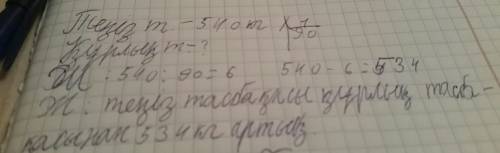 Теңіз т - 540 кг 1/90
Құрлық т - ?
Ш: 540 : 90 = 6 540 - 6 = 534
Ж: теңіз тасбақасы құрлық тасба-
қасынан 534 кг артық.